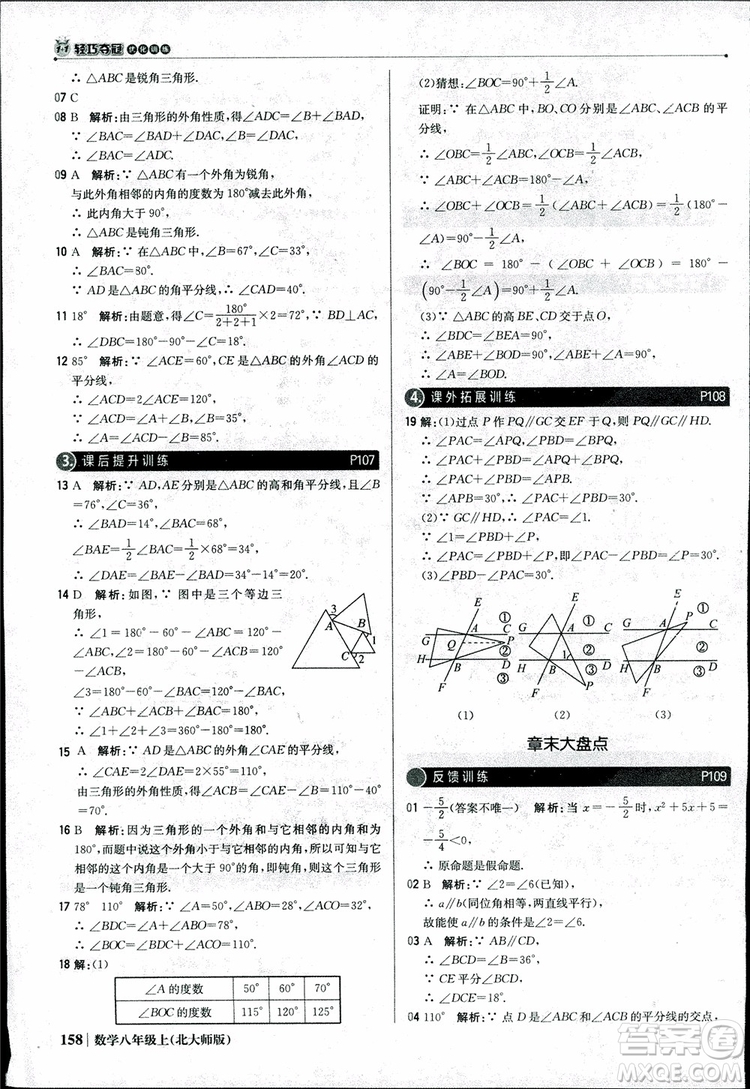 1+1 轻巧夺冠 优化训练
∴ △ABC是锐角三角形.
07 C
08 B 解析:由三角形的外角性质,得∠ADC=∠B+∠BAD,
∵ ∠BAC=∠BAD+∠DAC,∠B=∠DAC,
∴ ∠BAC=∠ADC.
09 A 解析:∵ △ABC有一个外角为锐角,
与此外角相邻的内角的度数为180°减去此外角,
∴ 此内角大于90°,
∴ △ABC是钝角三角形.
10 A 解析:∵ 在△ABC中,∠B=67°,∠C=33°,
∴ ∠BAC=80°.
∵ AD是△ABC的角平分线,∴ ∠CAD=40°.
11 18° 解析:由题意,得∠C=180°/(2+2+1)×2=72°,∵ BD⊥AC,
∴ ∠DBC=180°-90°-72°=18°.
12 85° 解析:∵ ∠ACE=60°,CE是△ABC的外角∠ACD的
平分线,
∴ ∠ACD=2∠ACE=120°.
∵ ∠ACD=∠B+∠A=35°+∠A=120°,
∴ ∠A=85°.
3. 课后提升训练 P107
13 A 解析:∵ AD,AE分别是△ABC的高和角平分线,且∠B
=76°,∠C=36°,
∴ ∠BAD=14°,∠CAD=54°,
∠BAE=1/2∠BAC=1/2×68°=34°,
∴ ∠DAE=∠BAE-∠BAD=20°.
14 D 解析:如图,∵ 图中是三个等边三
角形,
∴ ∠1=180°-60°-∠ABC=120°
-∠ABC,
∠2=180°-60°-∠ACB=120°
-∠ACB,
∠3=180°-60°-∠BAC=120°-∠BAC,
∵ ∠ABC+∠ACB+∠BAC=180°,
∴ ∠1+∠2+∠3=360°-180°=180°.
3
A
B
1
C
2
15 A 解析:∵ AD是△ABC的外角∠CAE的平分线,
∴ ∠CAE=2∠DAE=120°.
由三角形的外角性质,得∠CAE=∠B+∠C,
∴ ∠B=∠CAE-∠C=120°-80°=40°.
16 B 解析:因为三角形的一个外角与它相邻的内角和为
180°,而这个外角小于与它相邻的内角,所以可知与它相邻
的这个内角大于90°,这个外角小于90°,即钝角,则这个三角形
是一个钝角三角形.
17 78° 110° 解析:∵ ∠A=50°,∠ABO=28°,∠ACO=32°,
∴ ∠BDC=∠A+∠ABO=78°,
∴ ∠BOC=∠BDC+∠ACO=110°.
18 解:(1)
∠A的度数 50° 60° 70°
∠BOC的度数 115° 120° 125°
158 数学八年级上(北大师版)
(2)猜想:∠BOC=90°+1/2∠A.
证明:∵ 在△ABC中,BO,CO分别是∠ABC与∠ACB的平
分线,
∴ ∠OBC=1/2∠ABC,∠OCB=1/2∠ACB,
∵ ∠ABC+∠ACB=180°-∠A,
∴ ∠OBC+∠OCB=1/2(∠ABC+∠ACB)=1/2(180°-
∠A)=90°-1/2∠A,
∴ ∠BOC=180°-(∠OBC+∠OCB)=180°-
(90°-1/2∠A)=90°+1/2∠A.
(3)∵ △ABC的高BE,CD交于点O,
∴ ∠BDC=∠BEA=90°,
∴ ∠ABE+∠BOD=90°,
∠ABE+∠A=90°,
∴ ∠A=∠BOD.
4. 课外拓展训练 P108
19 解:(1)过点P作PQ∥GC交EF于Q,则PQ∥GC∥HD.
∴ ∠PAC=∠APQ,∠PBD=∠BPQ,
∴ ∠PAC+∠PBD=∠APQ+∠BPQ,
∴ ∠PAC+∠PBD=∠APB.
∵ ∠APB=30°,∴ ∠PAC+∠PBD=30°.
(2)∵ GC∥HD,∴ ∠PAC=∠1,
∵ ∠1=∠PBD+∠P,
∴ ∠PAC=∠PBD+∠P,即∠PAC-∠PBD=30°.
(3)∠PBD-∠PAC=30°.
E ① G A C Q P ② H B D ③ F
(1)
E ① G A C ② 1 H B D ③ P F
(2)
E ① P G A C ② H B D ③ F
(3)
章末大盘点
反馈训练 P109
01 -5/2(答案不唯一) 解析:当x=-5/2时,x²+5x+5=
-5/4<0,
∴ 原命题是假命题.
02 B 解析:∵ ∠2=∠6(已知),
∴ a∥b(同位角相等,两直线平行).
故能使a∥b的条件是∠2=∠6.
03 A 解析:∵ ∠B=67°,∠ACB=74°,∴ ∠A=39°.
∵ CD平分∠ACB,∴ ∠BCD=37°.
04 110° 解析:∵ 点D是∠ABC与∠ACB的平分线的交点,
答案圈
MXQE.COM